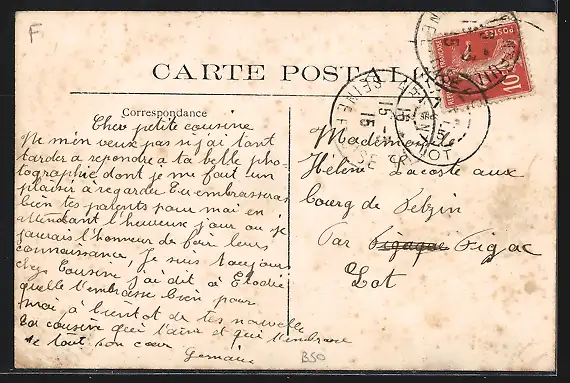 F
CARTE POSTALE
Correspondance
Cher petite cousine
Ne m'en veux pas si j'ai tant
tarder a repondre a ta belle pho-
tographie dont je me fait un
plaisir à regarder Tu embrasseras
bien tes parents pour moi en
attendant l'heureux jour ou je
jaurais l'honneur de fair leurs
connaissance, je suis toujours
cher Cousine j'ai dit a Elodie
quelle t'embrasse bien pour
moi, à bientot de tes nouvelle
Ta cousine qui t'aime et qui t'embrasse
de tout son cœur
Germaine
Mademoiselle
Hélène Lacoste aux
bourg de Felzin
Par Figeac
Lot
POSTES
10
LOT
B50